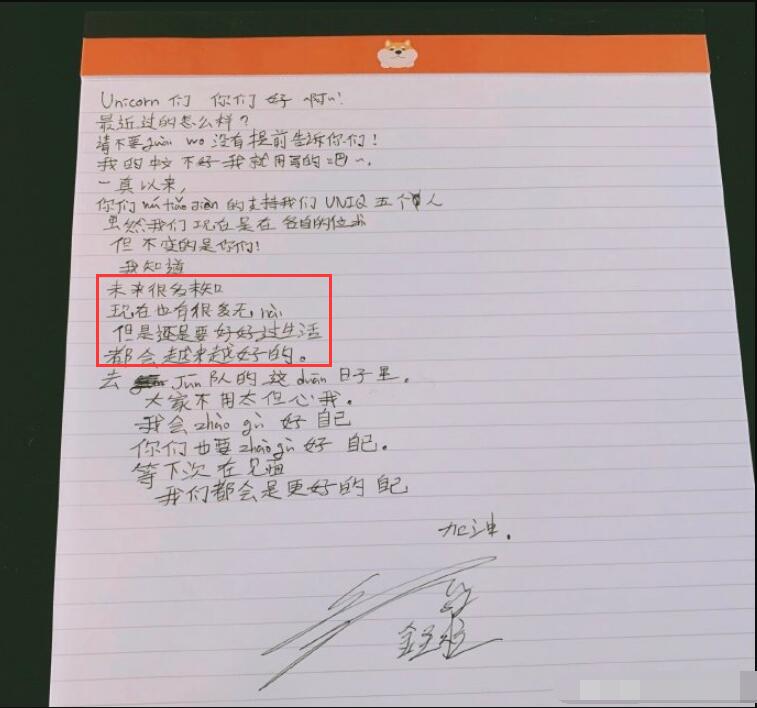 Unicorn们 你们 好 啊~!
最近过的怎么样?
请不要guài wo没有提前告诉你们!
我的中文不好我就用写的吧~.
一真以来,
你们wú tiáo jiàn的支持我们 UNIQ 五个人
虽然我们现在是在 各自的位
但 不变的是你们!
我知道
未来很多未知
现在也有很多无nài
但是还是要好好过生活
都会越来越好的。
去 Jūn队的这duàn日子里.
大家不用太但心我.
我会zhào gù 好 自己
你们也要zhào gù好 自己.
等下次在见面
我们都会是更好的自己
加油.